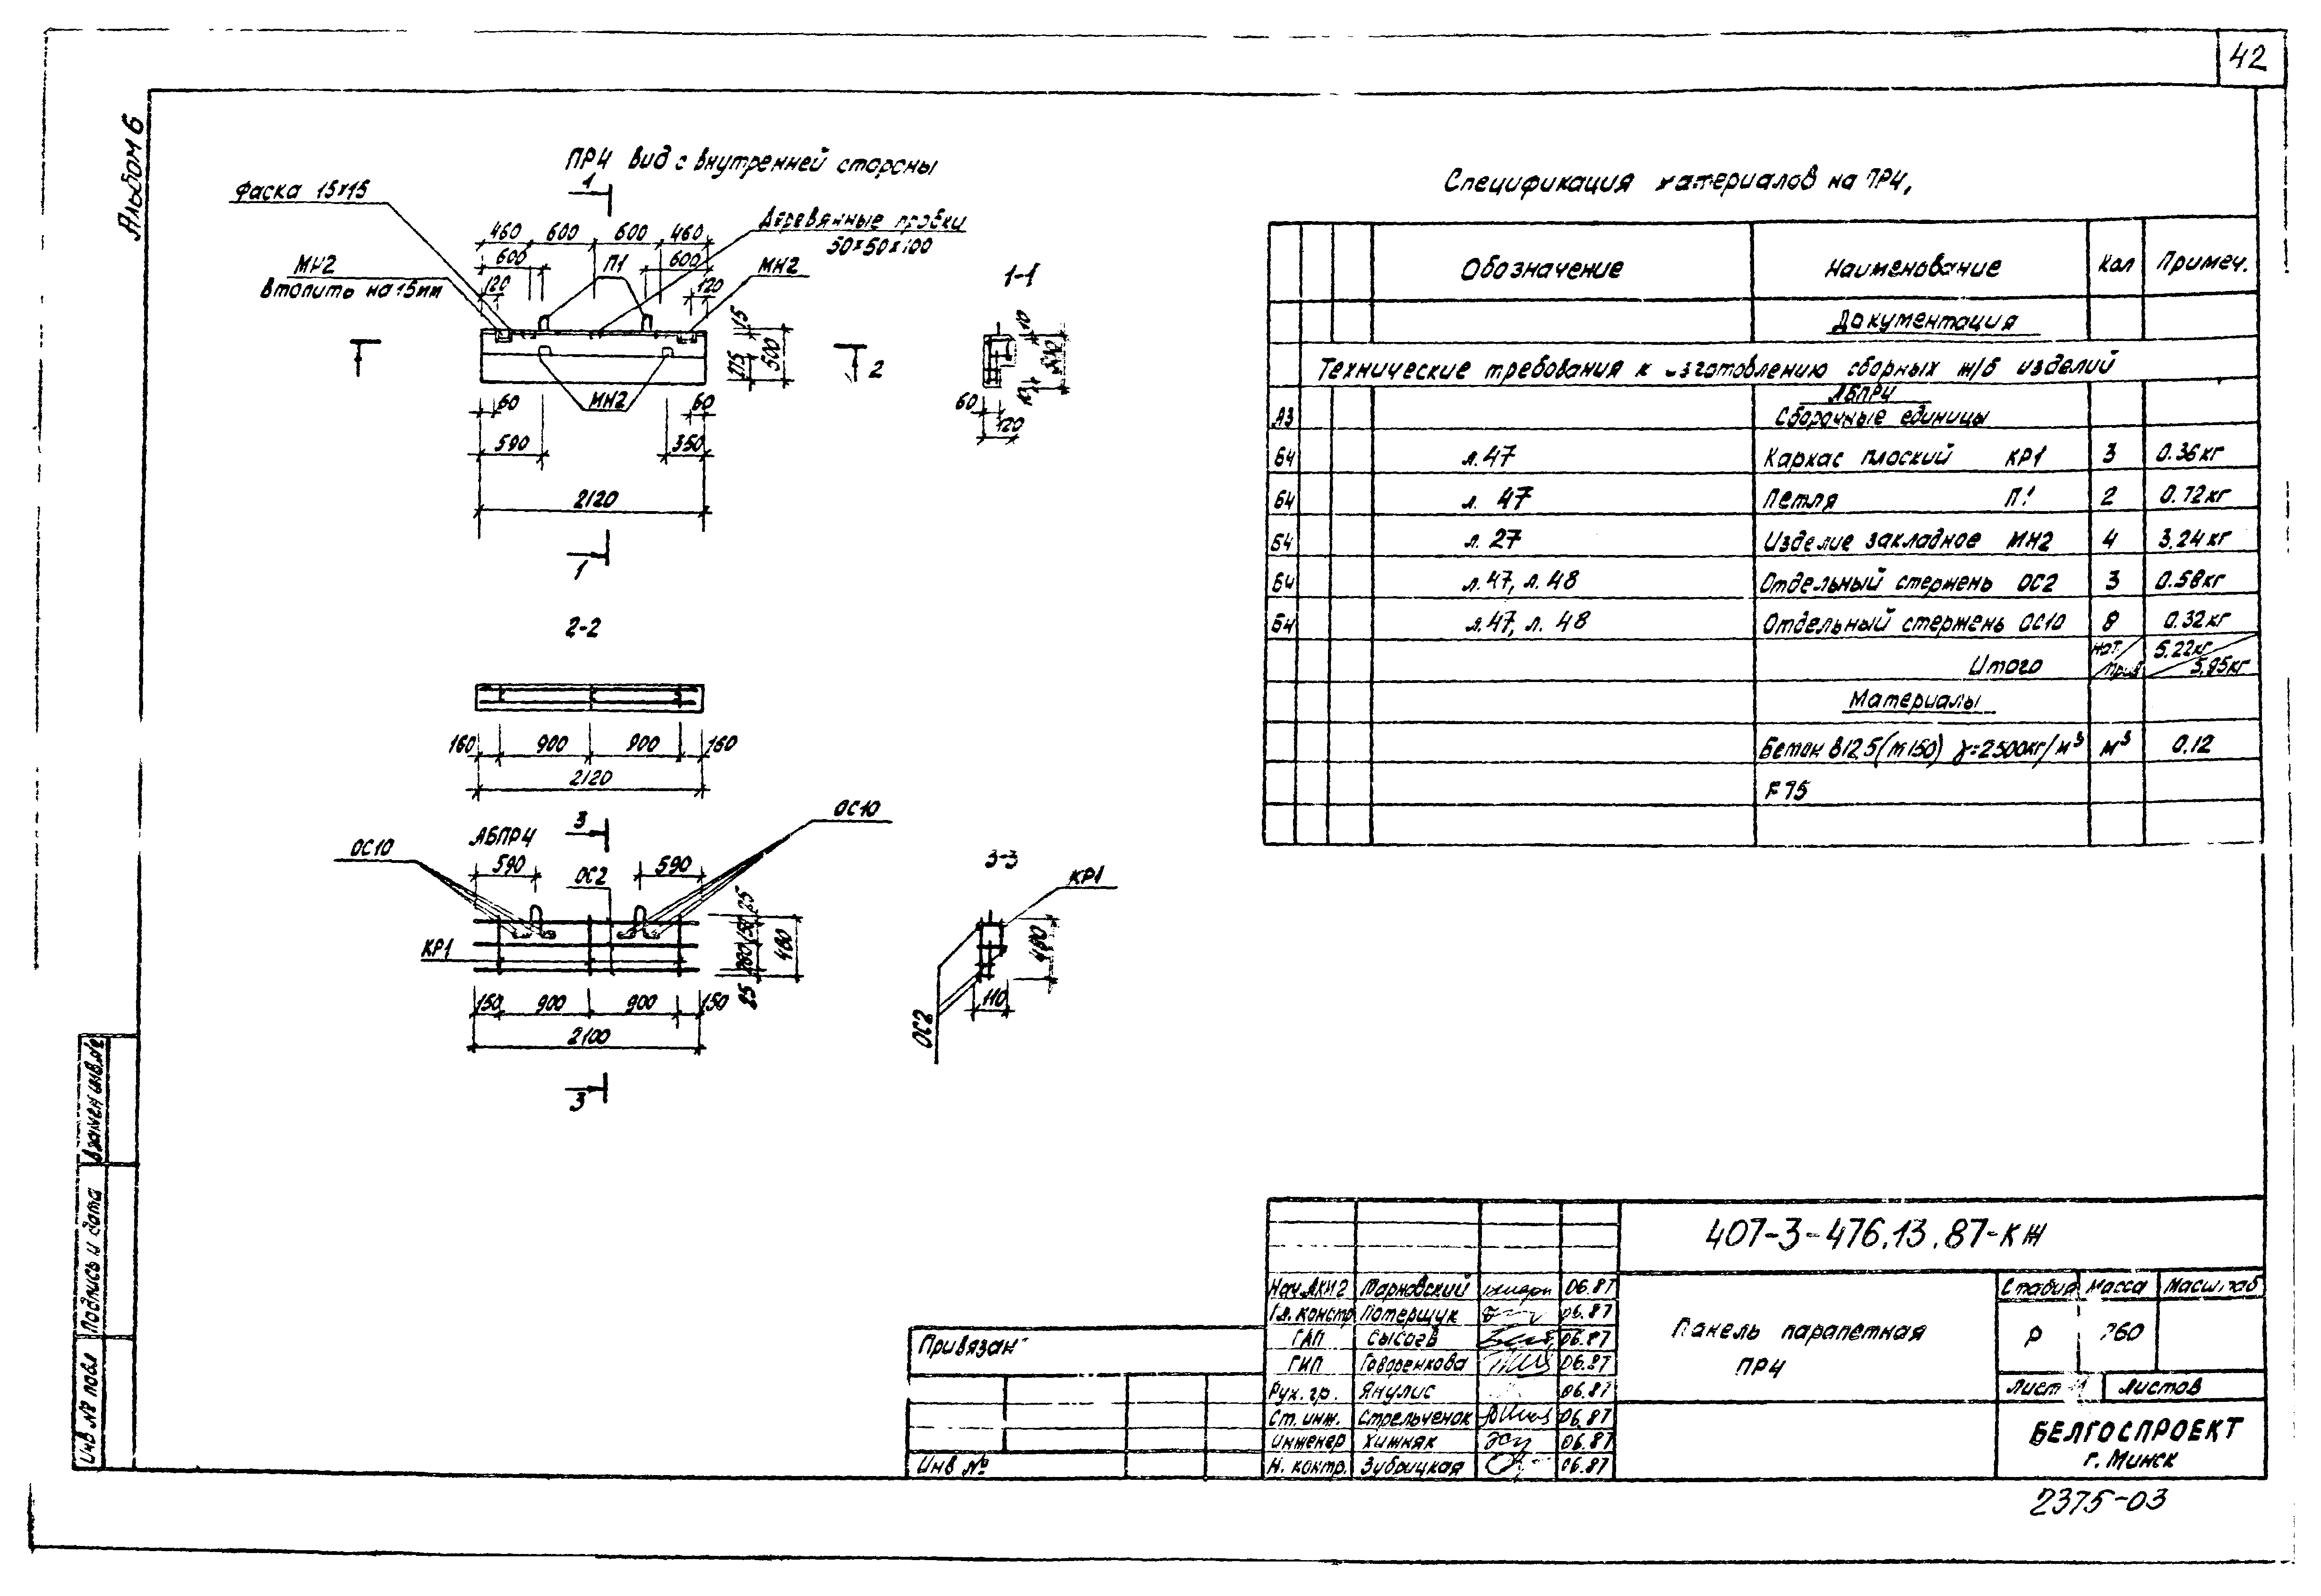 42
Альбом 6
ПР4 вид с внутренней стороны
1
Фаска 15х15
Деревянные пробки
50х50х100
460 600 600 460
600 П1 600
МН2
втопить на 15мм
МН2
120 120
15
500
275
2
60 МН2 60
590 350
2120
1
1-1
10
60
120
2-2
160 900 900 160
2120
3
АБПР4
ОС10
ОС10
590 ОС2 590
КР1
25
150
280
25
480
150 900 900 150
2100
3
3-3
КР1
480
110
ОС2
Спецификация материалов на ПР4,
Обозначение Наименование Кол Примеч.
Документация
Технические требования к изготовлению сборных ж/б изделий
АБПР4
А3 Сборочные единицы
Б4 л.47 Каркас плоский КР1 3 0.36кг
Б4 л. 47 Петля П1 2 0.72кг
Б4 л. 27 Изделие закладное МН2 4 3.24кг
Б4 л.47, л. 48 Отдельный стержень ОС2 3 0.58кг
Б4 л.47, л. 48 Отдельный стержень ОС10 8 0.32кг
Итого нат. 5.22кг
прив
Материалы
Бетон В12,5(М150) γ=2500кг/м³ м³ 0.12
F75
407-3-476.13.87-КЖ
Нач. АКИ2 Тарновский 06.87
Гл. констр Потерщук 06.87
ГАП Сысоев 06.87
ГИП Говоренкова 06.87
Рук. гр. Янулис 06.87
Ст. инж. Стрельченок 06.87
Инженер Хижняк 06.87
Н. контр. Зубрицкая 06.87
Панель парапетная
ПР4
Стадия Масса Масштаб
Р
Лист Листов
БЕЛГОСПРОЕКТ
г. Минск
2375-03
Привязан
Инв №
Взамен инв.№
Подпись и дата
Инв № подл